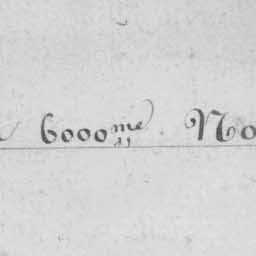 6000me No